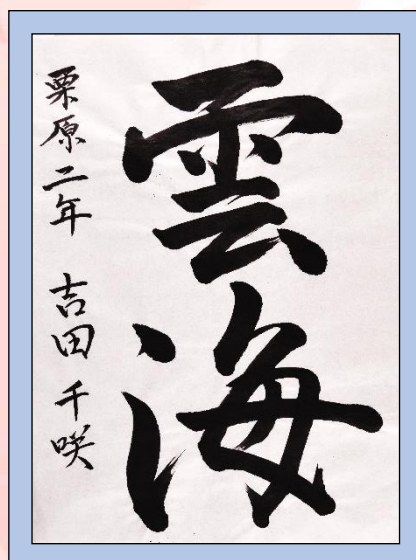 雲海
栗原二年 吉田千咲